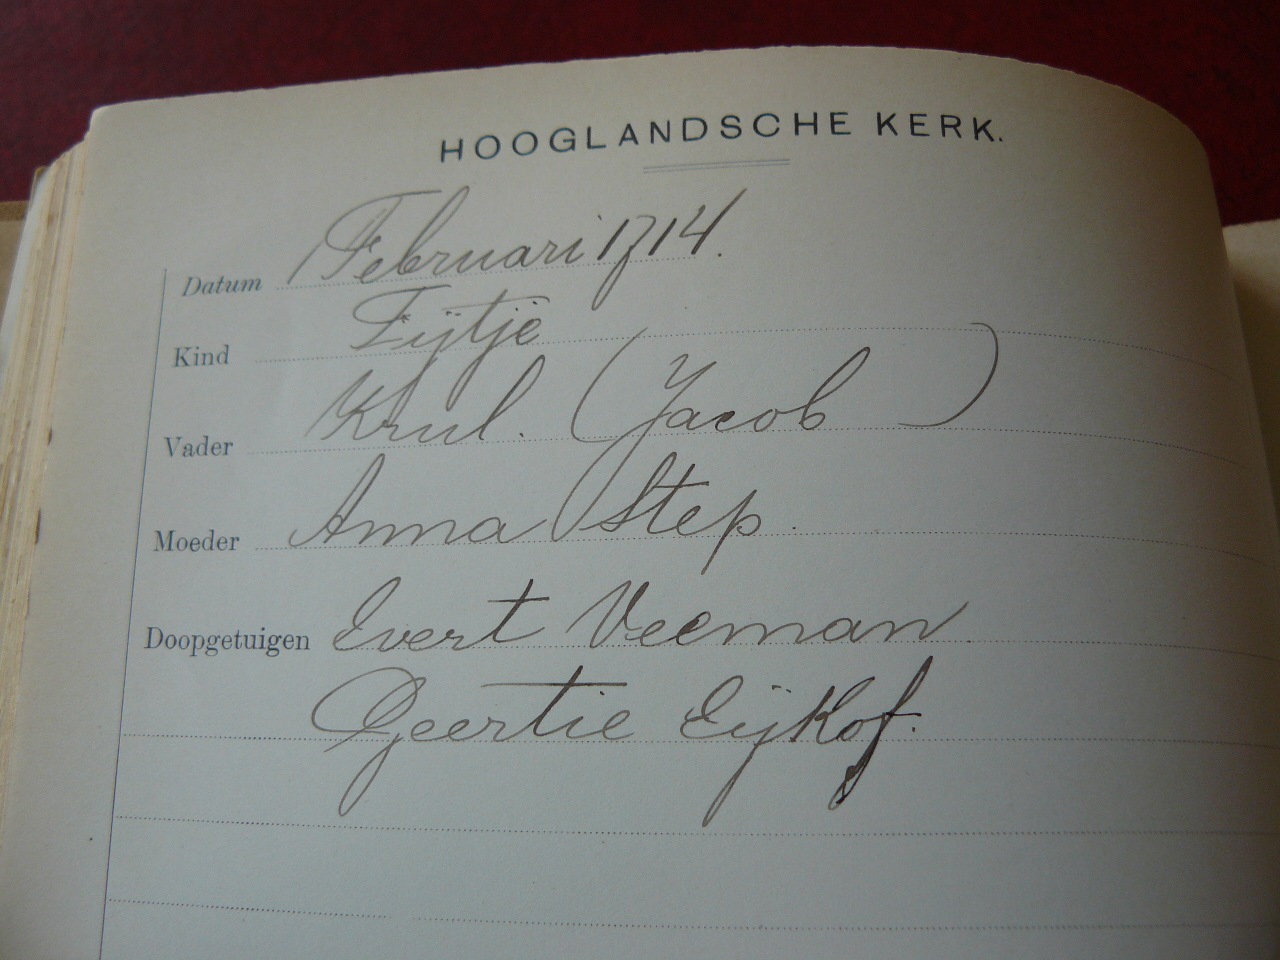 HOOGLANDSCHE KERK.
Datum Februari 1714.
Kind Fijtje
Vader Krul. (Jacob)
Moeder Anna Step.
Doopgetuigen Evert Veeman.
Geertie Eijkof.